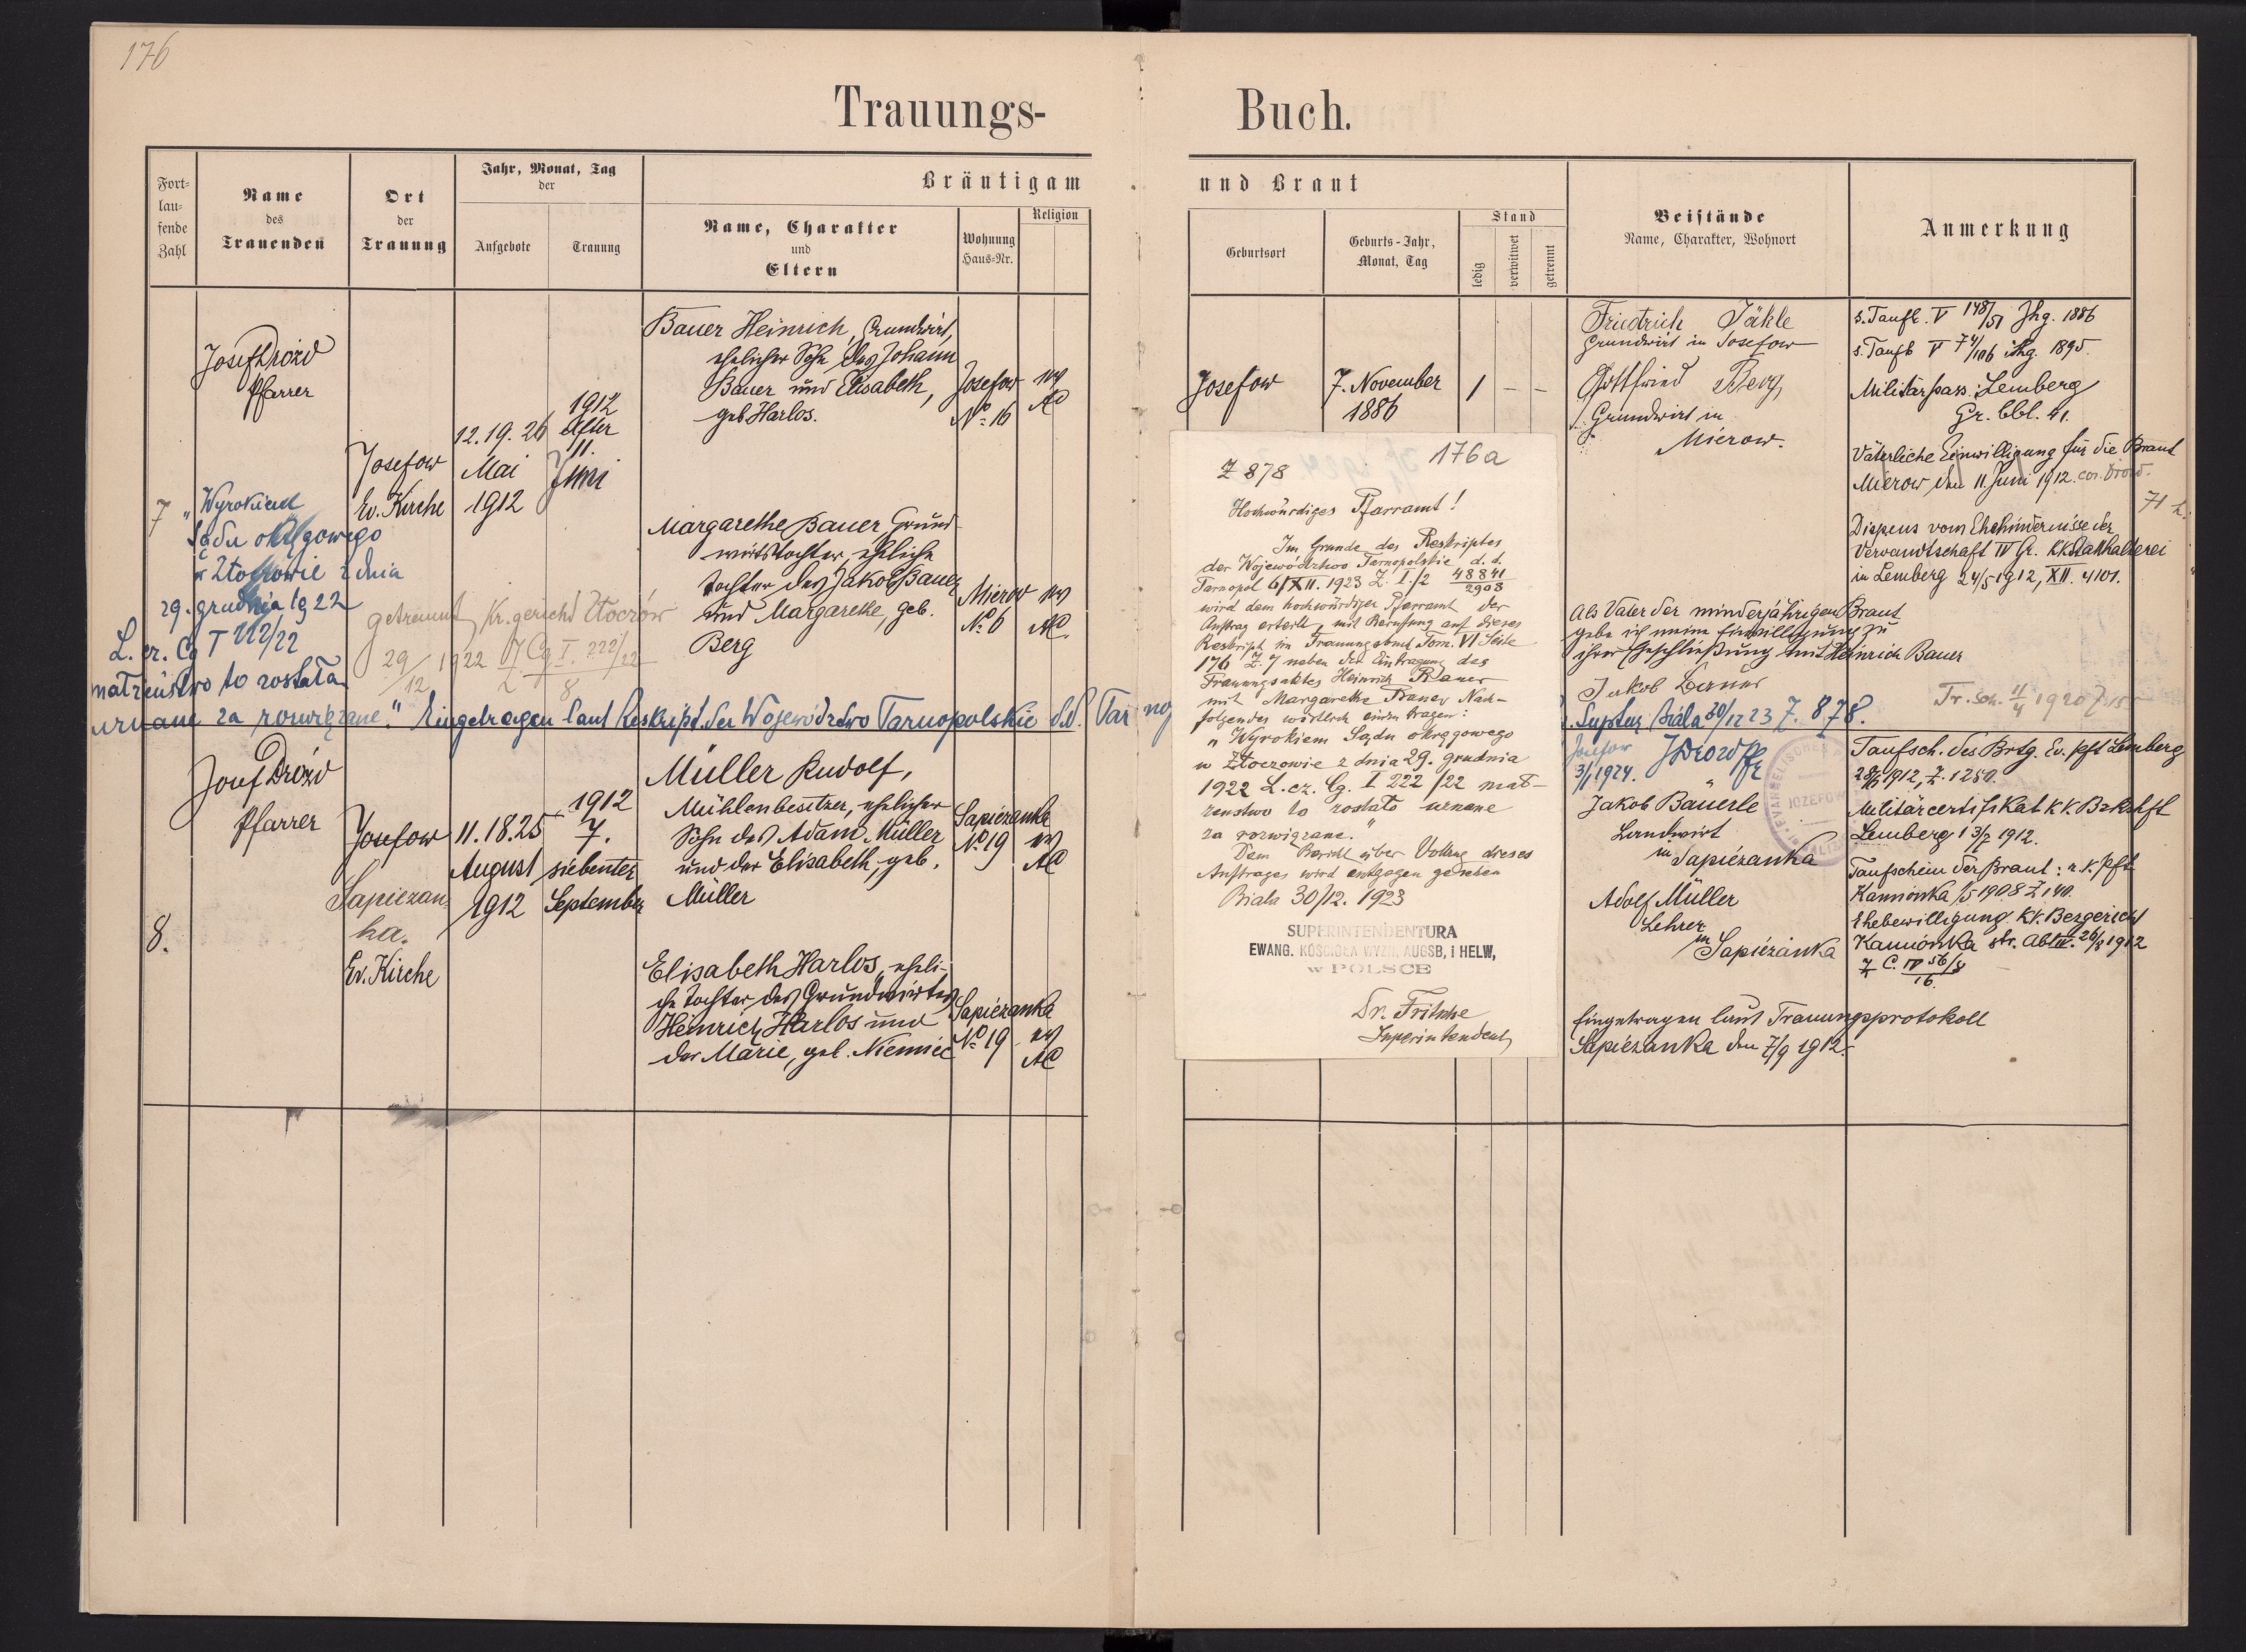 176
Trauungs-
Buch.
Fort-
lau-
fende
Zahl
Name
des
Trauenden
Ort
der
Trauung
Jahr, Monat, Tag
der
Aufgebote
Trauung
Bräutigam
Name, Charakter
und
Eltern
Wohnung
Haus-Nr.
Religion
und Braut
Geburtsort
Geburts-Jahr,
Monat, Tag
Stand
ledig
verwitwet
getrennt
Beistände
Name, Charakter, Wohnort
Anmerkung
7
Josef Drozd
Pfarrer
Josefow
Ev. Kirche
12. 19. 26
Mai
1912
1912
Elfter
11.
Juni
Bauer Heinrich, Grundwirt,
ehelicher Sohn des Johann
Bauer und Elisabeth,
geb. Harlos.
Josefow
No. 16
AC
Margarethe Bauer, Grund-
wirtstochter, eheliche
Tochter des Jakob Bauer
und Margarethe, geb.
Berg
Mierow
No. 6
AC.
„Wyrokiem
Sądu okręgowego
w Złoczowie z dnia
29. grudnia 1922
L. cz. Cg I 222/22
małżeństwo to zostało
uznane za rozwiązane." Eingetragen laut Reskript. der Wojewódzdwo Tarnopolskie d.d. Tarnop
getrennt Kr. gericht Złoczów
29/12 1922 Z Cg I. 222/22
8
Josefow
7. November
1886
1 – –
Friedrich Jäkle
Grundwirt in Josefow
Gottfried Berg,
Grundwirt in
Mierow.
Als Vater der minderjährigen Braut
gebe ich meine Einwilligung zu
ihrer Eheschließung mit Heinrich Bauer
Jakob Bauer
Suptur Biala 30/12 23 Z. 878.
3/1 1924. JDrozd Pfr
s. Taufb. V 148/51 Jhg. 1886
s. Taufb V 74/106 Jhg. 1895.
Militärpass: Lemberg
Gr. bbl. 41.
Väterliche Einwilligung für die Braut
Mierow den 11. Juni 1912. cor. Drozd.
Dispens vom Ehehindernisse der
Verwandtschaft IV Gr. KK Statthalterei
in Lemberg 24/5 1912, XII. 4101.
Tr. Sch. 11/4 1920
176a
Z 878
Hochwürdiges Pfarramt!
Im Grunde des Reskriptes
der Województwo Tarnopolskie d. d.
Tarnopol 6/XII. 1923 Z. I/2 48841/2903
wird dem hochwürdigen Pfarramt der
Auftrag erteilt, mit Berufung auf dieses
Reskript im Trauungsbuch Tom. VI Seite
176 Z. 7 neben der Eintragung des
Trauungsaktes Heinrich Bauer
mit Margarethe Bauer Nach-
folgendes wörtlich einzutragen:
„Wyrokiem Sądu okręgowego
w Złoczowie z dnia 29. grudnia
1922 L. cz. Cg. I 222/22 mał-
żeństwo to zostało uznane
za rozwiązane."
Dem Bericht über Vollzug dieses
Auftrages wird entgegen gesehen
Biala 30/12. 1923
SUPERINTENDENTURA
EWANG. KOŚCIOŁA WYZN. AUGSB. i HELW,
w POLSCE
Superintendent
8.
Josef Drozd
Pfarrer
Josefow
Sapiezan-
ka.
Ev. Kirche
11. 18. 25
August
1912
1912
7.
siebenter
September
Müller Rudolf,
Mühlenbesitzer, ehelicher
Sohn des Adam Müller
und der Elisabeth, geb.
Müller
Sapiezanka
No 19
AC
Elisabeth Harlos, eheli-
che Tochter des Grundwirtes
Heinrich Harlos und
der Marie, geb. Niemiec
Sapiezanka
No 19
AC
Jakob Bäuerle
Landwirt
in Sapiézanka
Adolf Müller
Lehrer
in
Sapiézanka
Eingetragen laut Trauungsprotokoll
Sapiézanka den 7/9 1912.
Taufsch. des Brtg. Ev. Pft Lemberg
1912, Z. 1250.
Militärcertifikat KK. Bzkshft
Lemberg 13/7 1912.
Taufschein der Braut: r. k. Pft
Kamionka 1908 Z 140.
Ehebewilligung KK. Bezgericht
Kamionka str. Abt IV. 26/8 1912
Z C. IV 56/8
16.